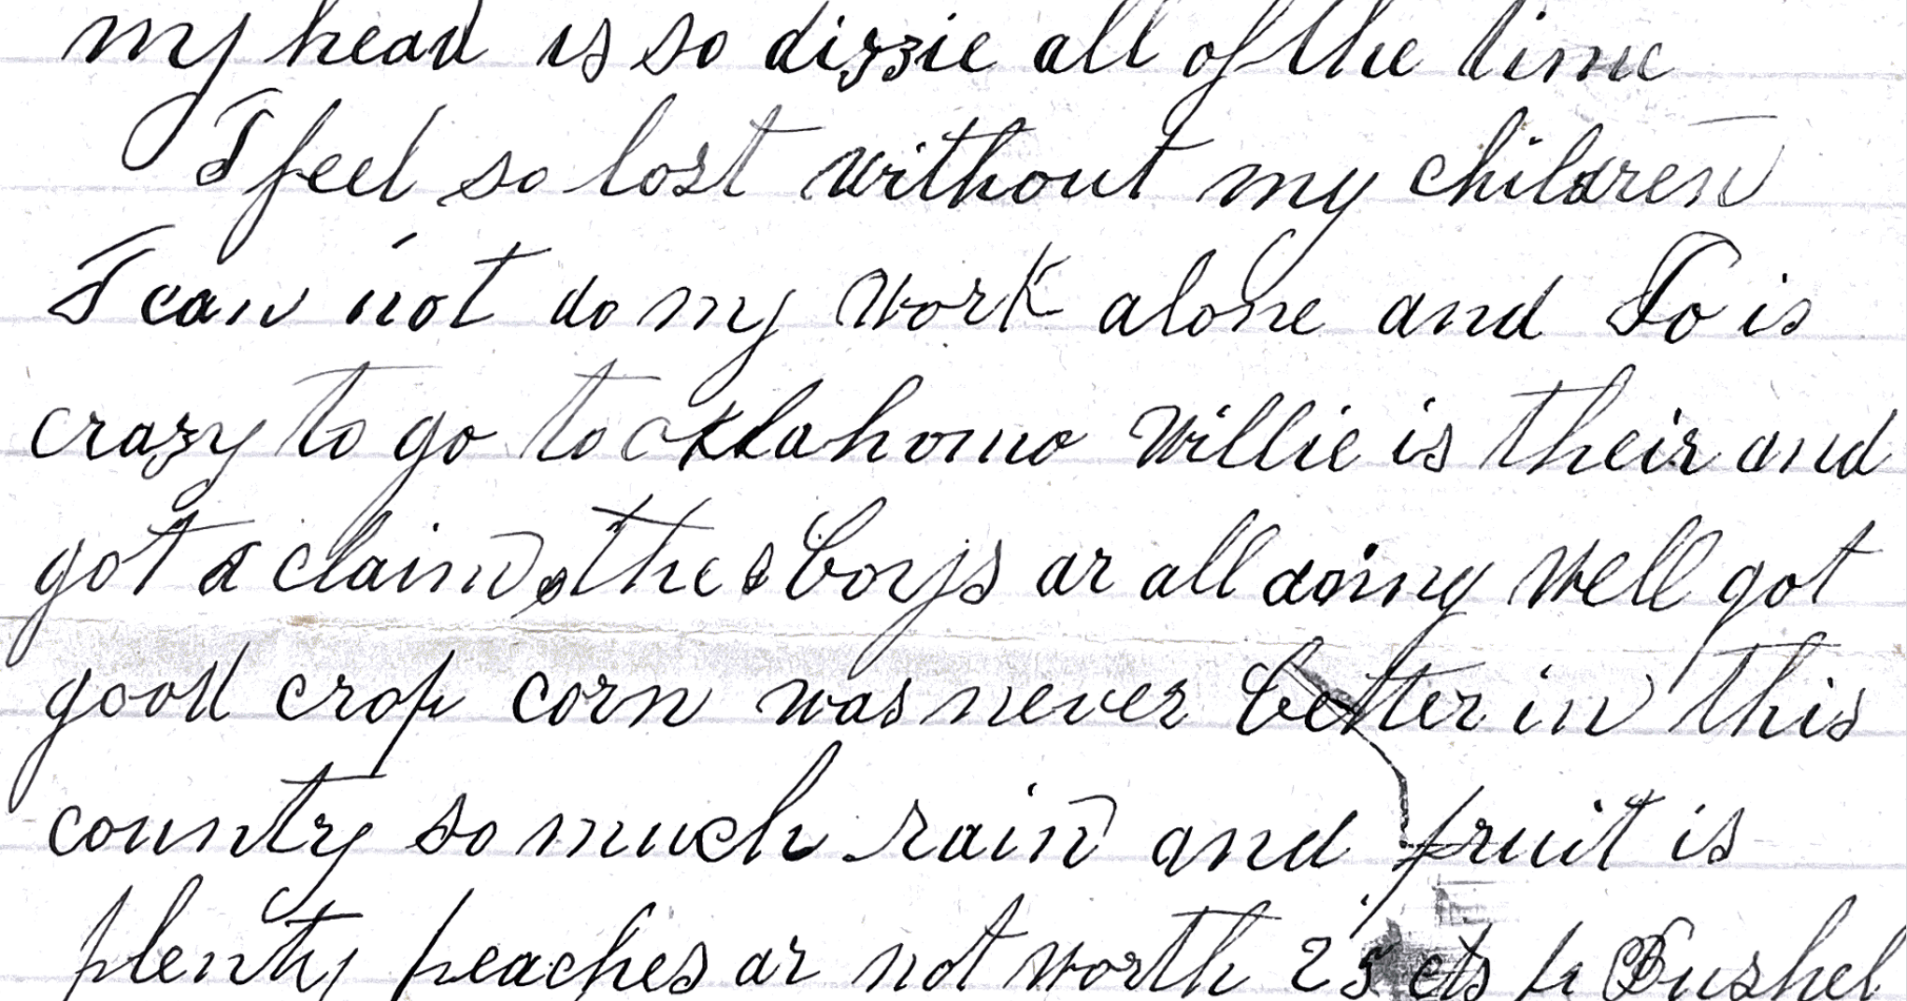 my head is so dizzie all of the time
I feel so lost without my children
I can not do my work alone and Jo is
crazy to go to oklahomo Willie is their and
got a claim the boys ar all doing well got
good crop corn was never better in this
country so much rain and fruit is
plenty peaches ar not worth 25 cts p Bushel